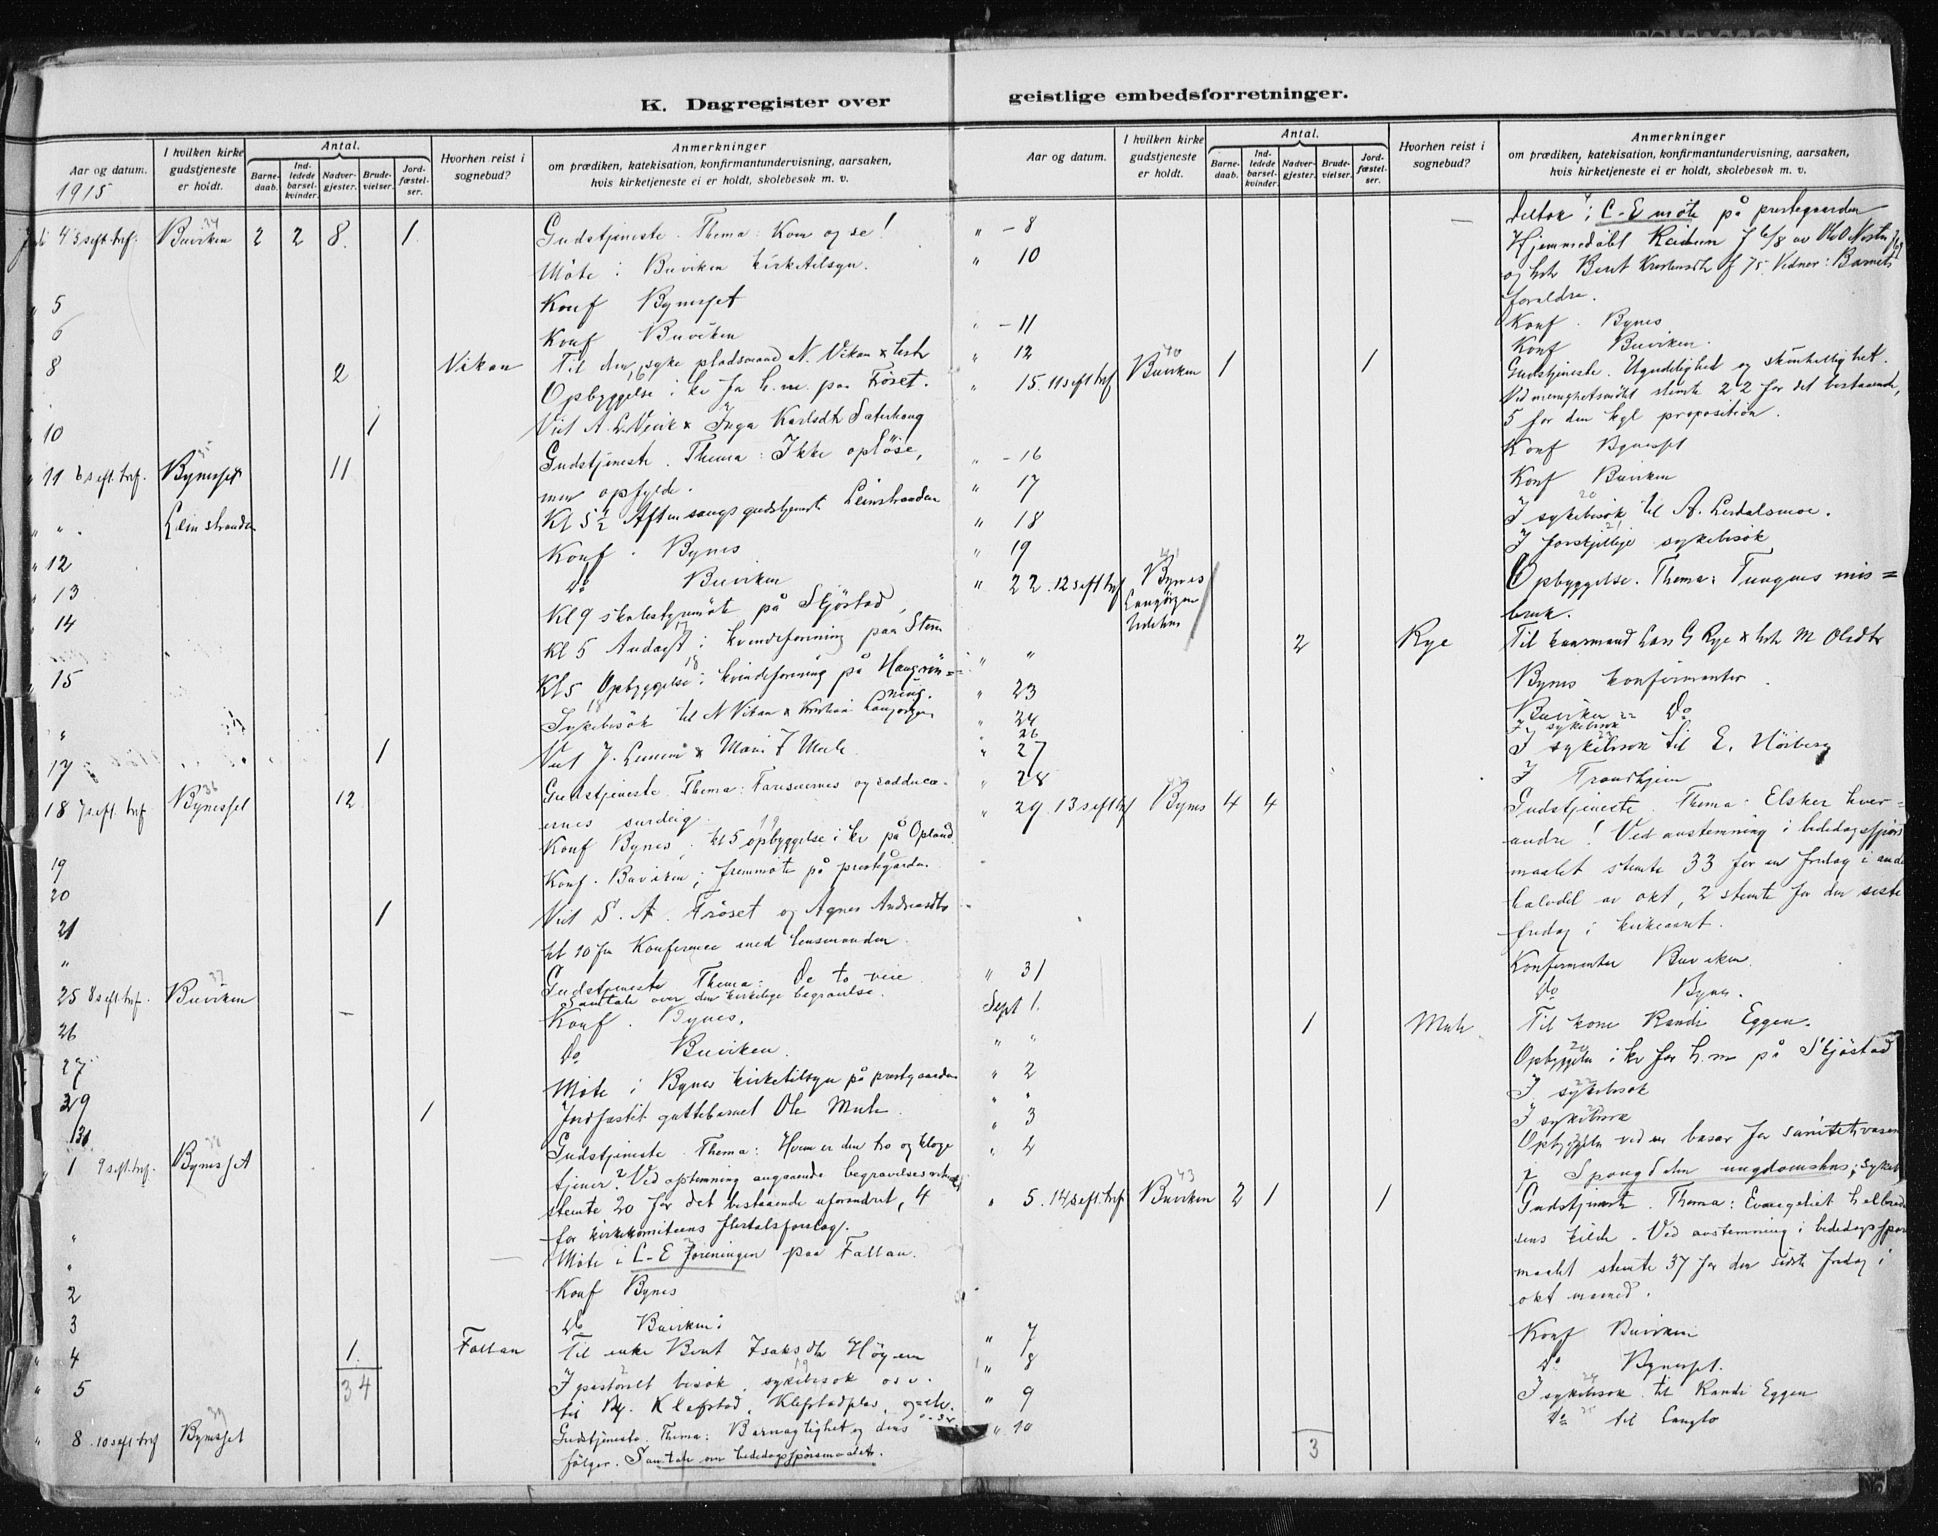 K. Dagregister over
geistlige embedsforretninger.
Aar og datum.
1915
I hvilken kirke gudstjeneste er holdt.
Antal.
Barne-daab.
Ind-ledede barsel-kvinder.
Nadver-gjester.
Brude-vielser.
Jord-fæstel-ser.
Hvorhen reist i sognebud?
Anmerkninger
om prædiken, katekisation, konfirmantundervisning, aarsaken,
hvis kirketjeneste ei er holdt, skolebesøk m. v.
4 5 s eft. tref. Buviken 34 2 2 8 1 Gudstjeneste. Thema: Kom og se!
Möte i Buviken kirketilsyn.
" 5 Konf Bynesset
6 Konf Buviken
8 2 Vikan Til den syke pladsmand N. Vikan x hstr
Opbyggelse i kv for h.m. paa Fröset.
" 10 1 Viet A. L. x Inga Karlsdtr Saterhaug
" 11 6 s eft. tref. Bynesset 11 Gudstjeneste. Thema: Ikke oplöse,
men opfylde.
" " Leinstranden Kl 5 1/2 Aftensangsgudstjeneste Leinstranden
" 12 Konf. Bynes
" 13 do Buviken
14 Kl 9 skolestyremöte på Skjöstad
Kl 5 Andagt i kvindeforening paa Steen
" 15 Kl 5 Opbyggelse i kvindeforening på Haugrön=
ning.
" Sykebesök til N Vikan x Kristian Langörgen
17 1 Viet J. x Marie J Mule
18 7 s eft. tref. Bynesset 36 12 Gudstjeneste. Thema: Farisæernes og sadducæ-
ernes surdeig.
19 Konf Bynes, kl 5 opbyggelse i kv på Opland
20 Konf. Buviken; fremmöte på prestegården
21 1 Viet S. A. Fröset og Agnes Andreasdtr
" kl 10 fm Konferance med lensmanden.
25 8 s eft. tref. Buviken 37 Gudstjeneste Thema: De to veie
Samtale over den kirkelige begravelse.
26 – Konf. Bynes.
27 Do Buviken.
29 Möte i Bynes kirketilsyn på prestgaarden
1 Jordfæstet guttebarnet Ole Mule.
1 9 s eft. tref. Bynesset 38 Gudstjeneste Thema: Hvem er den tro og kloge
tjener? Ved avstemning angaaende
stemte 20 for det bestaaende uforandret, 4
for kirkekomiteens flertalsforslag.
" – Möte i C-E foreningen paa Faltan.
2 Konf Bynes
3 do Buviken:
" 4 1. Faltan Til enke Berit Isaksdtr Höyem
34
" 5 I pastoralt besök, sykebesök osv.
til Klefstad, Klefstadplas,
" 8. 10 s eft tref Bynesset 39 Gudstjeneste. Thema: Barnagtighet og dens
fölger. Samtale om bededagsspörsmaalet.
Aar og datum.
I hvilken kirke gudstjeneste er holdt.
Antal.
Barne-daab.
Ind-ledede barsel-kvinder.
Nadver-gjester.
Brude-vielser.
Jord-fæstel-ser.
Hvorhen reist i sognebud?
Anmerkninger
om prædiken, katekisation, konfirmantundervisning, aarsaken,
hvis kirketjeneste ei er holdt, skolebesøk m. v.
" – 8 – Deltok i C-E möte på prestegaarden
" 10 Hjemmedöbt f 6/8 av
og hstr Berit Kristensdtr f 75. Vidner: Barnets
foreldre.
" – 11 Konf. Bynes
" 12 Konf Buviken.
" 15. 11 s eft tref Buviken 40 1 1 Gudstjeneste. Ugudelighet og skinhellighet.
Ved menighetsmötet stemte 22 for det bestaaende,
5 for den kgl proposition.
" – 16 Konf Bynesset
" 17 Konf Buviken
" 18 I sykebesök til A. Lerdalsmoe.
" 19 I forskjellige sykebesök
" 22. 12 s eft tref Bynes 41 Opbyggelse. Thema: Tungens mis=
Langörgen bruk.
" " 2 Rye Til kaarmand Lars G Rye x hstr M Olsdtr
" 23 Bynes konfirmanter.
" 24 Buviken " Do
" 26 I sykebesök
" 27 I sykebesök til E. Höiberg
" 28 I Trondhjem
" 29 13 s eft tref Bynes 42 4 4 Gudstjeneste. Thema: Elsker hver-
andre! Ved avstemning i bededagsspörs
maalet stemte 33 for en fredag i anden
halvdel av okt, 2 stemte for den siste
fredag i kirkeaaret.
" 31 Konfirmanter Buviken
Sept 1. do Bynes.
" " 1 Mule Til kone Randi Eggen.
" 2 Opbyggelse i kv for h.m på Skjöstad
" " I sykebesök
" 3 I sykebesök
" 4 Opbyggelse ved en basar for sanitetsvæsen
i Spongdalen ungdomshus; syke
" 5. 14 s eft. tref. Buviken 43 2 1 1 Gudstjeneste. Thema: Evangeliet helbred
sens kilde. Ved avstemning i bededagsspörs
maalet stemte 37 for den sidste fredag i
okt maaned.
" 7 Konf Buviken
" 8 do. Bynesset.
" 9 I sykebesök til Randi Eggen
" 10 do til Langlo
3